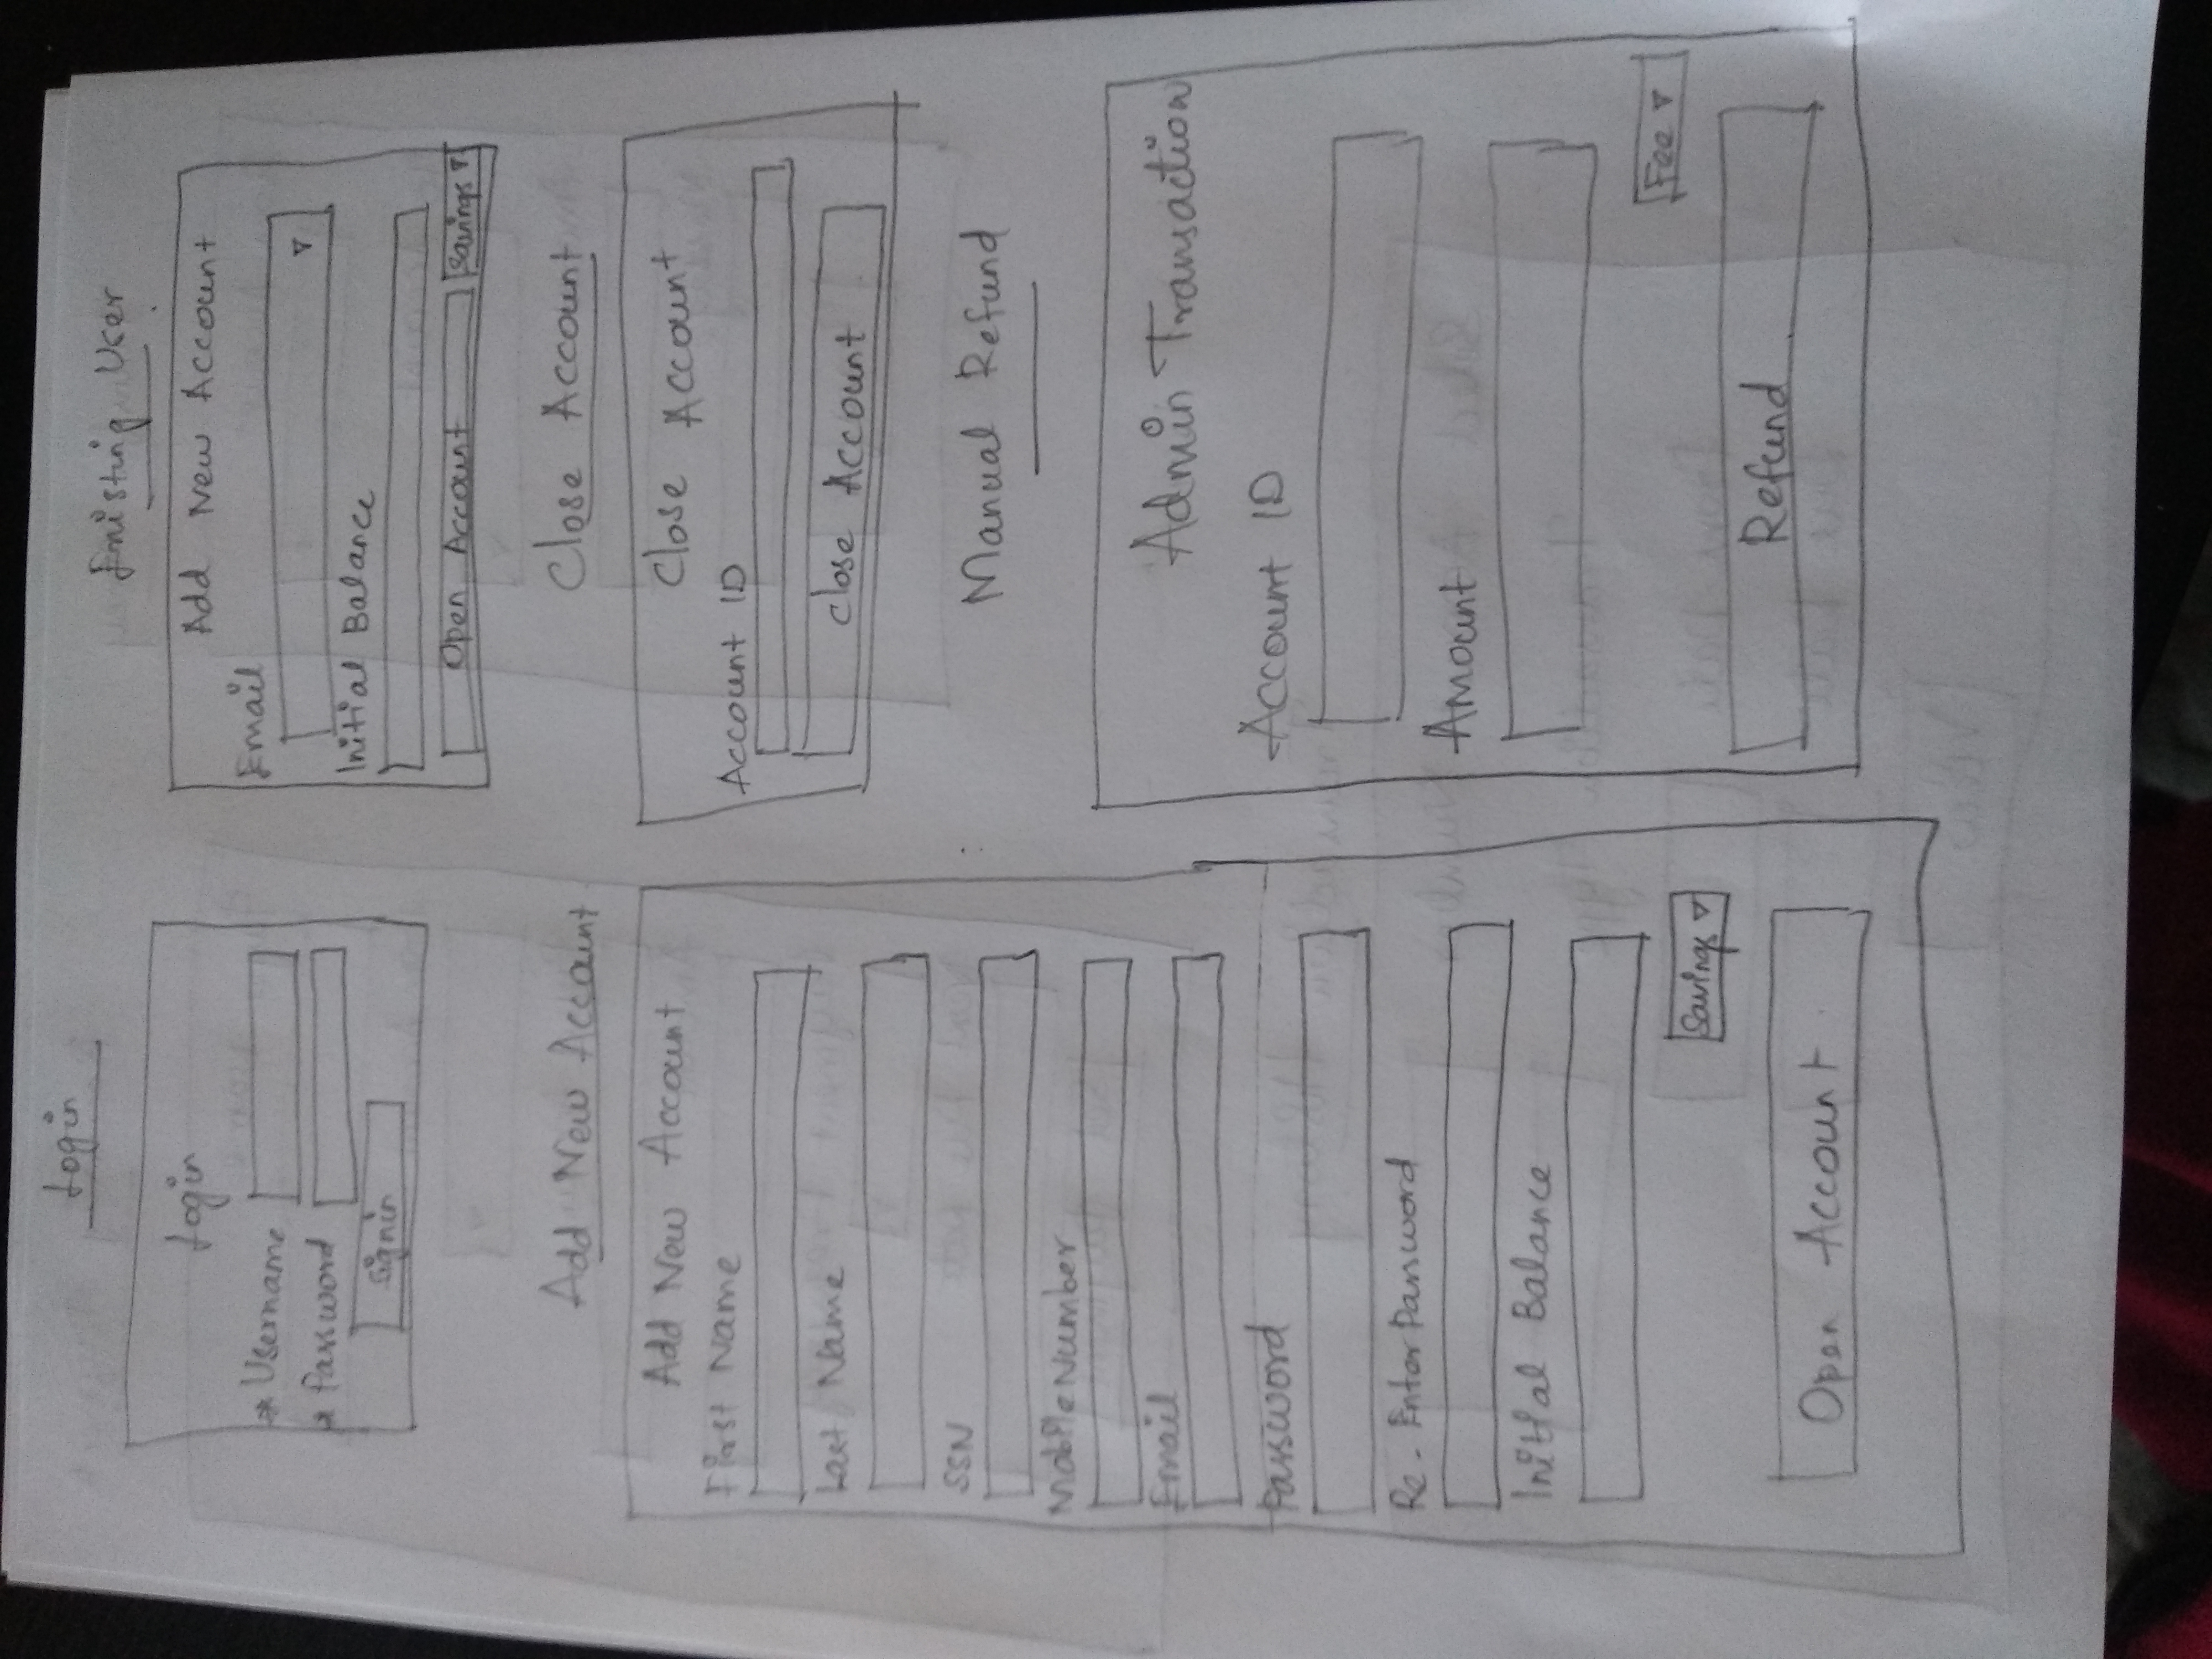 Login
Login
* Username
* Password
Signin
Add New Account
Add New Account
First Name
Last Name
SSN
Mobile Number
Email
Password
Re-Enter Password
Initial Balance
Savings
Open Account
Existing User
Add New Account
Email
Initial Balance
Open Account Savings
Close Account
Close Account
Account ID
Close Account
Manual Refund
Admin Transaction
Account ID
Amount
Fee
Refund